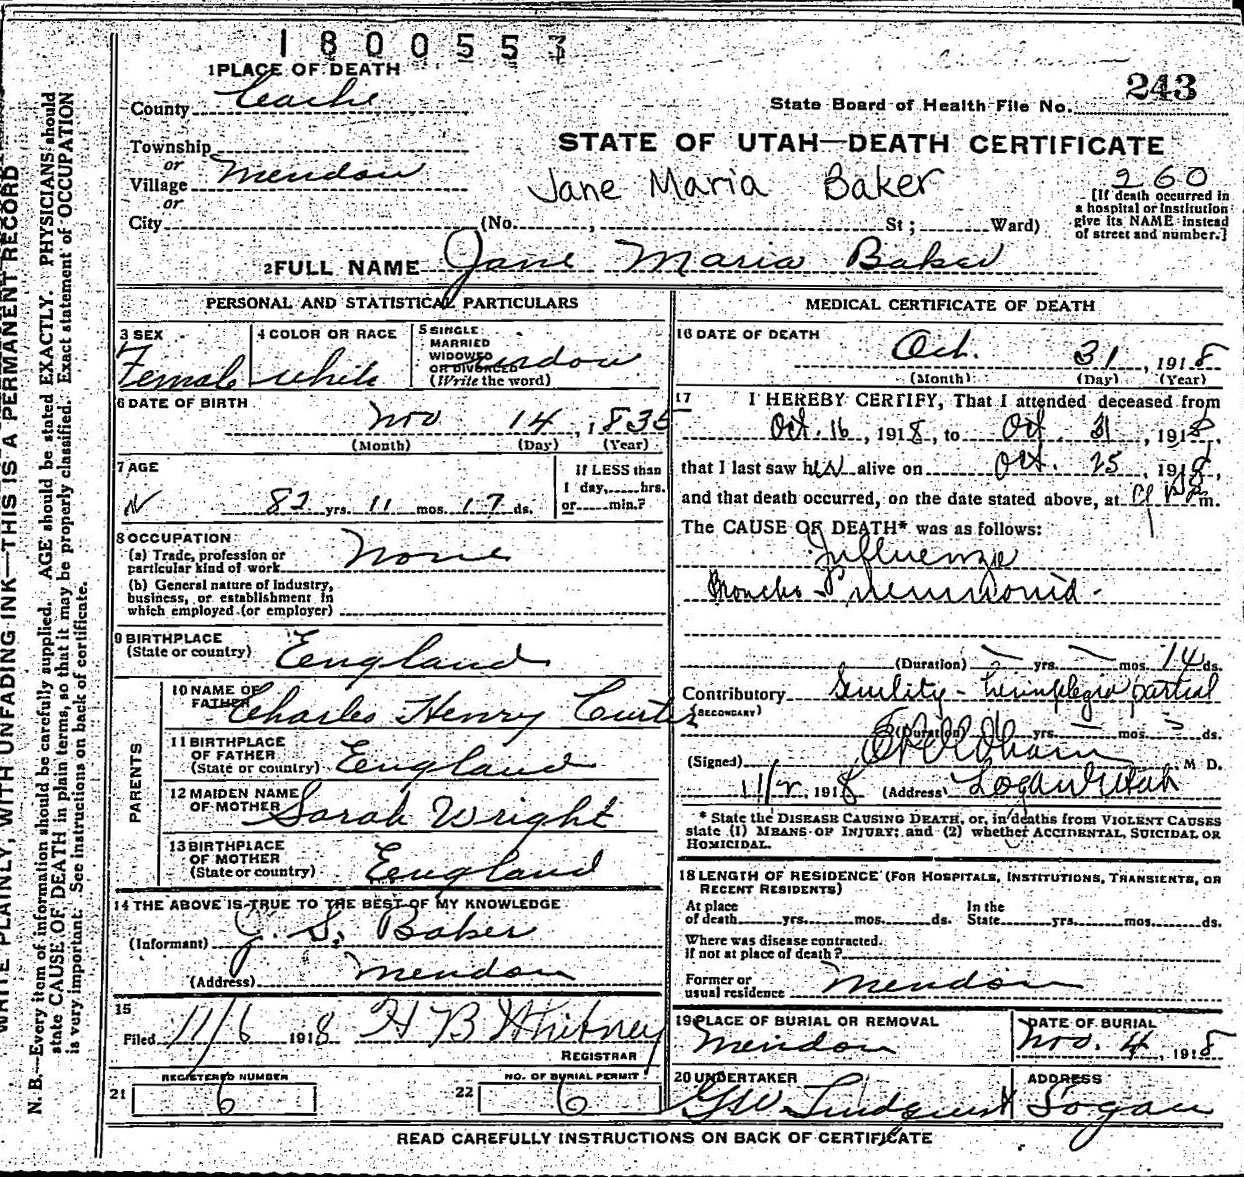 1800553
1 PLACE OF DEATH
County Cache
State Board of Health File No. 243
STATE OF UTAH—DEATH CERTIFICATE
Township
or
Village Mendon
or
Jane Maria Baker
260
[If death occurred in a hospital or institution give its NAME instead of street and number.]
City (No. , St; Ward)
2 FULL NAME Jane Maria Baker
PERSONAL AND STATISTICAL PARTICULARS
3 SEX
Female
4 COLOR OR RACE
white
5 SINGLE
MARRIED
WIDOWED
OR DIVORCED
(Write the word)
widow
6 DATE OF BIRTH
Nov 14, 1835
(Month) (Day) (Year)
7 AGE
82 yrs. 11 mos. 17 ds.
If LESS than
1 day, hrs.
or min.?
8 OCCUPATION
(a) Trade, profession or
particular kind of work None
(b) General nature of industry,
business, or establishment in
which employed (or employer)
9 BIRTHPLACE
(State or country) England
PARENTS
10 NAME OF
FATHER Charles Henry Curtis
11 BIRTHPLACE
OF FATHER
(State or country) England
12 MAIDEN NAME
OF MOTHER Sarah Wright
13 BIRTHPLACE
OF MOTHER
(State or country) England
14 THE ABOVE IS TRUE TO THE BEST OF MY KNOWLEDGE
(Informant) J. S. Baker
(Address) Mendon
15
Filed 11/6 1918 H B Whitney
REGISTRAR
21 REGISTERED NUMBER
6
22 NO. OF BURIAL PERMIT
6
MEDICAL CERTIFICATE OF DEATH
16 DATE OF DEATH
Oct. 31, 1918
(Month) (Day) (Year)
17 I HEREBY CERTIFY, That I attended deceased from
Oct. 16, 1918, to Oct. 31, 1918,
that I last saw her alive on Oct. 25, 1918,
and that death occurred, on the date stated above, at m.
The CAUSE OF DEATH* was as follows:
Influenza
Broncho Pneumonia
(Duration) yrs. mos. 14 ds.
Contributory Senility - hemiplegia partial
(SECONDARY)
(Duration) yrs. mos. ds.
(Signed) M D.
11/2, 1918 (Address) Logan Utah
* State the DISEASE CAUSING DEATH, or, in deaths from VIOLENT CAUSES
state (1) MEANS OF INJURY; and (2) whether ACCIDENTAL, SUICIDAL OR
HOMICIDAL.
18 LENGTH OF RESIDENCE (FOR HOSPITALS, INSTITUTIONS, TRANSIENTS, OR
RECENT RESIDENTS)
At place
of death yrs. mos. ds.
In the
State yrs. mos. ds.
Where was disease contracted.
If not at place of death?
Former or
usual residence Mendon
19 PLACE OF BURIAL OR REMOVAL
Mendon
DATE OF BURIAL
Nov. 4, 1918
20 UNDERTAKER
GW Lindquist
ADDRESS
Logan
READ CAREFULLY INSTRUCTIONS ON BACK OF CERTIFICATE
WRITE PLAINLY, WITH UNFADING INK—THIS IS A PERMANENT RECORD
N. B.—Every item of information should be carefully supplied. AGE should be stated EXACTLY. PHYSICIANS should
state CAUSE OF DEATH in plain terms, so that it may be properly classified. Exact statement of OCCUPATION
is very important. See instructions on back of certificate.